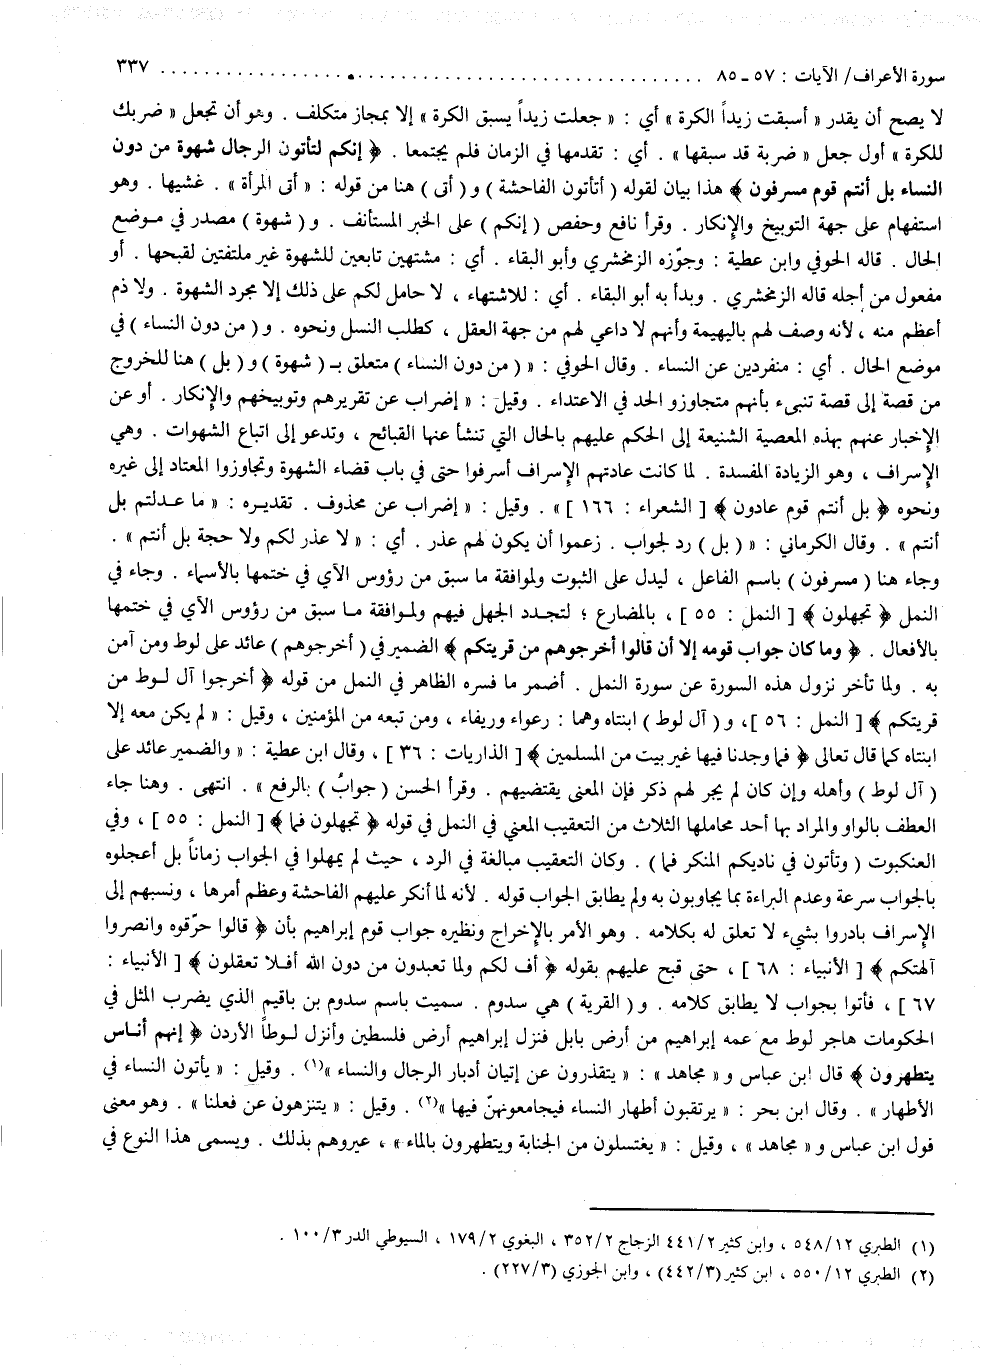 سورة الأعراف/ الآيات : ٥٧ ـ ٨٥ ................................................................ ٣٣٧
لا يصح أن يقدر « أسبقت زيداً الكرة » أي : « جعلت زيداً يسبق الكرة » إلا بمجاز متكلف . وهو أن تجعل « ضربك
للكرة » أول جعل « ضربة قد سبقها » . أي : تقدمها في الزمان فلم يجتمعا . ﴿ إنكم لتأتون الرجال شهوة من دون
النساء بل أنتم قوم مسرفون ﴾ هذا بيان لقوله ( أتأتون الفاحشة ) و ( أتى ) هنا من قوله : « أتى المرأة » . غشيها . وهو
استفهام على جهة التوبيخ والإنكار . وقرأ نافع وحفص ( إنكم ) على الخبر المستأنف . و ( شهوة ) مصدر في موضع
الحال . قاله الحوفي وابن عطية : وجوّزه الزمخشري وأبو البقاء . أي : مشتهين تابعين للشهوة غير ملتفتين لقبحها . أو
مفعول من أجله قاله الزمخشري . وبدأ به أبو البقاء . أي : للاشتهاء ، لا حامل لكم على ذلك إلا مجرد الشهوة . ولا ذم
أعظم منه ، لأنه وصف لهم بالبهيمة وأنهم لا داعي لهم من جهة العقل ، كطلب النسل ونحوه . و ( من دون النساء ) في
موضع الحال . أي : منفردين عن النساء . وقال الحوفي : « ( من دون النساء ) متعلق بـ ( شهوة ) و ( بل ) هنا للخروج
من قصة إلى قصة تنبىء بأنهم متجاوزو الحد في الاعتداء . وقيل : « إضراب عن تقريرهم وتوبيخهم والإنكار . أو عن
الإخبار عنهم بهذه المعصية الشنيعة إلى الحكم عليهم بالحال التي تنشأ عنها القبائح ، وتدعو إلى اتباع الشهوات . وهي
الإسراف ، وهو الزيادة المفسدة . لما كانت عادتهم الإسراف أسرفوا حتى في باب قضاء الشهوة وتجاوزوا المعتاد إلى غيره
ونحوه ﴿ بل أنتم قوم عادون ﴾ [ الشعراء : ١٦٦ ] » . وقيل : « إضراب عن محذوف . تقديره : « ما عدلتم بل
أنتم » . وقال الكرماني : « ( بل ) رد لجواب . زعموا أن يكون لهم عذر . أي : « لا عذر لكم ولا حجة بل أنتم » .
وجاء هنا ( مسرفون ) باسم الفاعل ، ليدل على الثبوت ولموافقة ما سبق من رؤوس الآي في ختمها بالأسماء . وجاء في
النمل ﴿ تجهلون ﴾ [ النمل : ٥٥ ] ، بالمضارع ؛ لتجدد الجهل فيهم ولموافقة ما سبق من رؤوس الآي في ختمها
بالأفعال . ﴿ وما كان جواب قومه إلا أن قالوا أخرجوهم من قريتكم ﴾ الضمير في ( أخرجوهم ) عائد على لوط ومن آمن
به . ولما تأخر نزول هذه السورة عن سورة النمل . أضمر ما فسره الظاهر في النمل من قوله ﴿ أخرجوا آل لوط من
قريتكم ﴾ [ النمل : ٥٦ ] ، و ( آل لوط ) ابنتاه وهما : رعواء وريفاء ، ومن تبعه من المؤمنين ، وقيل : « لم يكن معه إلا
ابنتاه كما قال تعالى ﴿ فما وجدنا فيها غير بيت من المسلمين ﴾ [ الذاريات : ٣٦ ] ، وقال ابن عطية : « والضمير عائد على
( آل لوط ) وأهله وإن كان لم يجر لهم ذكر فإن المعنى يقتضيهم . وقرأ الحسن ( جوابُ ) بالرفع » . انتهى . وهنا جاء
العطف بالواو والمراد بها أحد محاملها الثلاث من التعقيب المعني في النمل في قوله ﴿ تجهلون فما ﴾ [ النمل : ٥٥ ] ، وفي
العنكبوت ( وتأتون في ناديكم المنكر فما ) . وكان التعقيب مبالغة في الرد ، حيث لم يمهلوا في الجواب زماناً بل أعجلوه
بالجواب سرعة وعدم البراءة بما يجاوبون به ولم يطابق الجواب قوله . لأنه لما أنكر عليهم الفاحشة وعظم أمرها ، ونسبهم إلى
الإسراف بادروا بشيء لا تعلق له بكلامه . وهو الأمر بالإخراج ونظيره جواب قوم إبراهيم بأن ﴿ قالوا حرّقوه وانصروا
آلهتكم ﴾ [ الأنبياء : ٦٨ ] ، حتى قبح عليهم بقوله ﴿ أف لكم ولما تعبدون من دون الله أفلا تعقلون ﴾ [ الأنبياء :
٦٧ ] ، فأتوا بجواب لا يطابق كلامه . و ( القرية ) هي سدوم . سميت باسم سدوم بن باقيم الذي يضرب المثل في
الحكومات هاجر لوط مع عمه إبراهيم من أرض بابل فنزل إبراهيم أرض فلسطين وأنزل لوطاً الأردن ﴿ إنهم أناس
يتطهرون ﴾ قال ابن عباس و « مجاهد » : « يتقذرون عن إتيان أدبار الرجال والنساء »(١) . وقيل : « يأتون النساء في
الأطهار » . وقال ابن بحر : « يرتقبون أطهار النساء فيجامعونهنّ فيها »(٢) . وقيل : « يتنزهون عن فعلنا » . وهو معنى
قول ابن عباس و « مجاهد » ، وقيل : « يغتسلون من الجنابة ويتطهرون بالماء » ، عيروهم بذلك . ويسمى هذا النوع في
(١) الطبري ٥٤٨/١٢ ، وابن كثير ٤٤١/٢ الزجاج ٣٥٢/٢ ، البغوي ١٧٩/٢ ، السيوطي الدر ١٠٠/٣ .
(٢) الطبري ٥٥٠/١٢ ، ابن كثير (٤٤٢/٣) ، وابن الجوزي (٢٢٧/٣) .